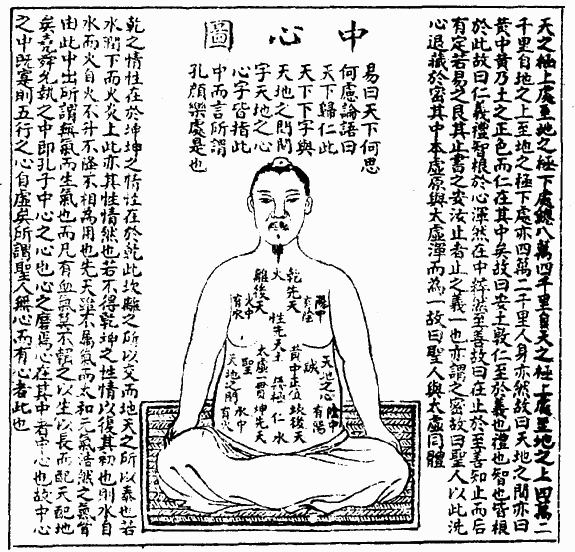 中心圖
天之極上處至地之極下處總八萬四千里自天之極上處至地之上四萬二
千里自地之上至地之極下處亦四萬二千里人身亦然故曰天地之間亦曰
黃中黃乃土之正色而仁在其中矣故曰安土敦仁至於義也禮也智也皆根
於此故曰仁義禮智根於心渾然在中粹然至善故曰在止於至善知止而后
有定若易之艮其止書之安汝止者止之義一也亦謂之密故曰聖人以此洗
心退藏於密其中本虛原與太虛渾而為一故曰聖人與太虛同體
易曰天下何思
何慮論語曰
天下歸仁此
天下下字與
天地之間間
字天地之心
心字皆指此
中而言所謂
孔顏樂處是也
乾先天
火
離後天
陽中
火中
有水
性先天土
誠
黃中正位
太虛一貫
聖
極仁
坎後天
水
坤先天
天地之心
天地之門
陰中
有陽
水中
有火
乾之情性在於坤坤之情性在於乾此坎離之所以交而地天之所以泰也若
水潤下而火炎上此亦其性情然也若不得乾坤之性情以復其初也則水自
水而火自火不升不降不相為用也先天雖不屬氣而太和元氣浩然之氣皆
由此中出所謂無氣而生氣也而凡有血氣莫不託之以生以長而配天配地
矣堯舜允執之中即孔子中心之心也心之磨焉心在其中者中心也故中心
之中既寔則五行之心自虛矣所謂聖人無心而有心者此也